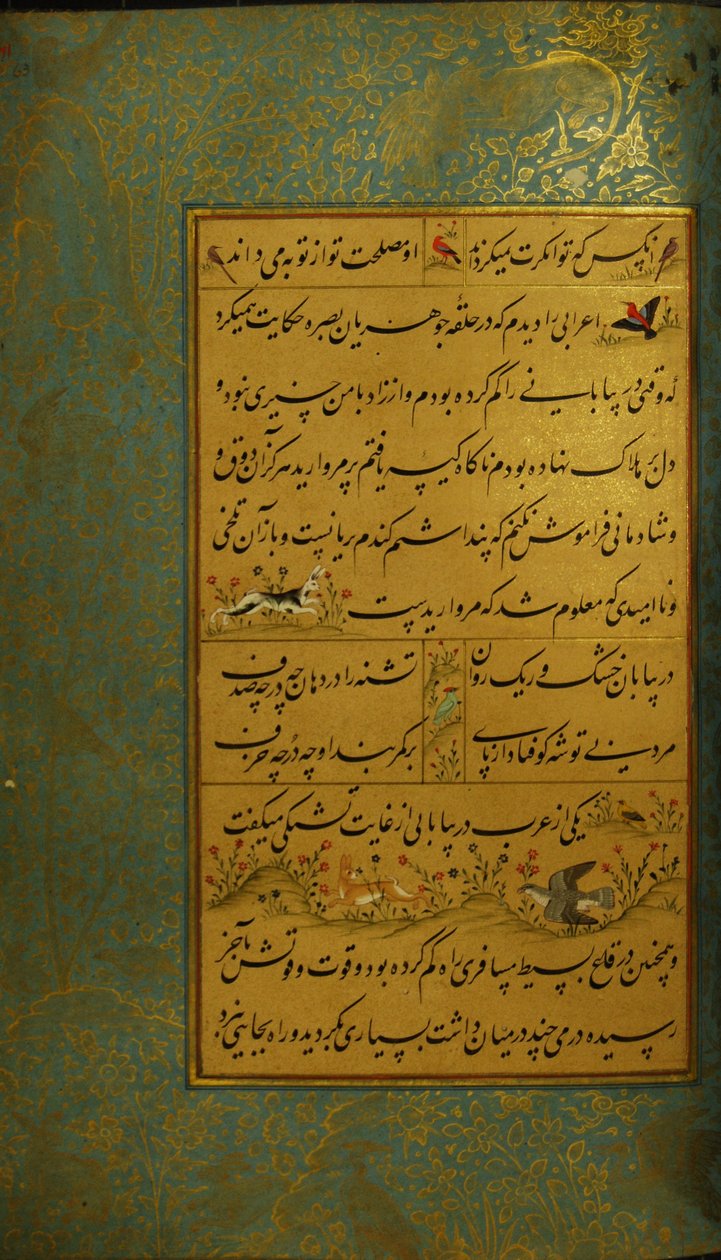 آنکس که توانگرت نمیکرداند او مصلحت تو از تو به می داند
اعرابی را دیدم که در حلقهٔ جوهریان بصره حکایت همیکرد
که وقتی در بیابانی راه کم کرده بودم و از زاد با من چیزی نبود و
دل بر هلاک نهاده بودم ناکاه کیسهٔ یافتم پر مروارید هرکز آن ذوق و
و شادمانی فراموش نکنم که پنداشتم کندم بریانست و باز آن تلخی
و ناامیدی که معلوم شد که مرواریدست
در بیابان خشک و ریک روان تشنه را در دهان چه در چه صدف
مرد بی توشه کوفتاد از پای بر کمربند او چه زر چه خزف
یکی از عرب در بیابانی از غایت تشنکی میکفت
و همچنین در قاع بسیط مسافری راه کم کرده بود و قوت و قوتش بآخر
رسیده درمی چند در میان داشت بسیاری بکردید و راه بجایی نبرد